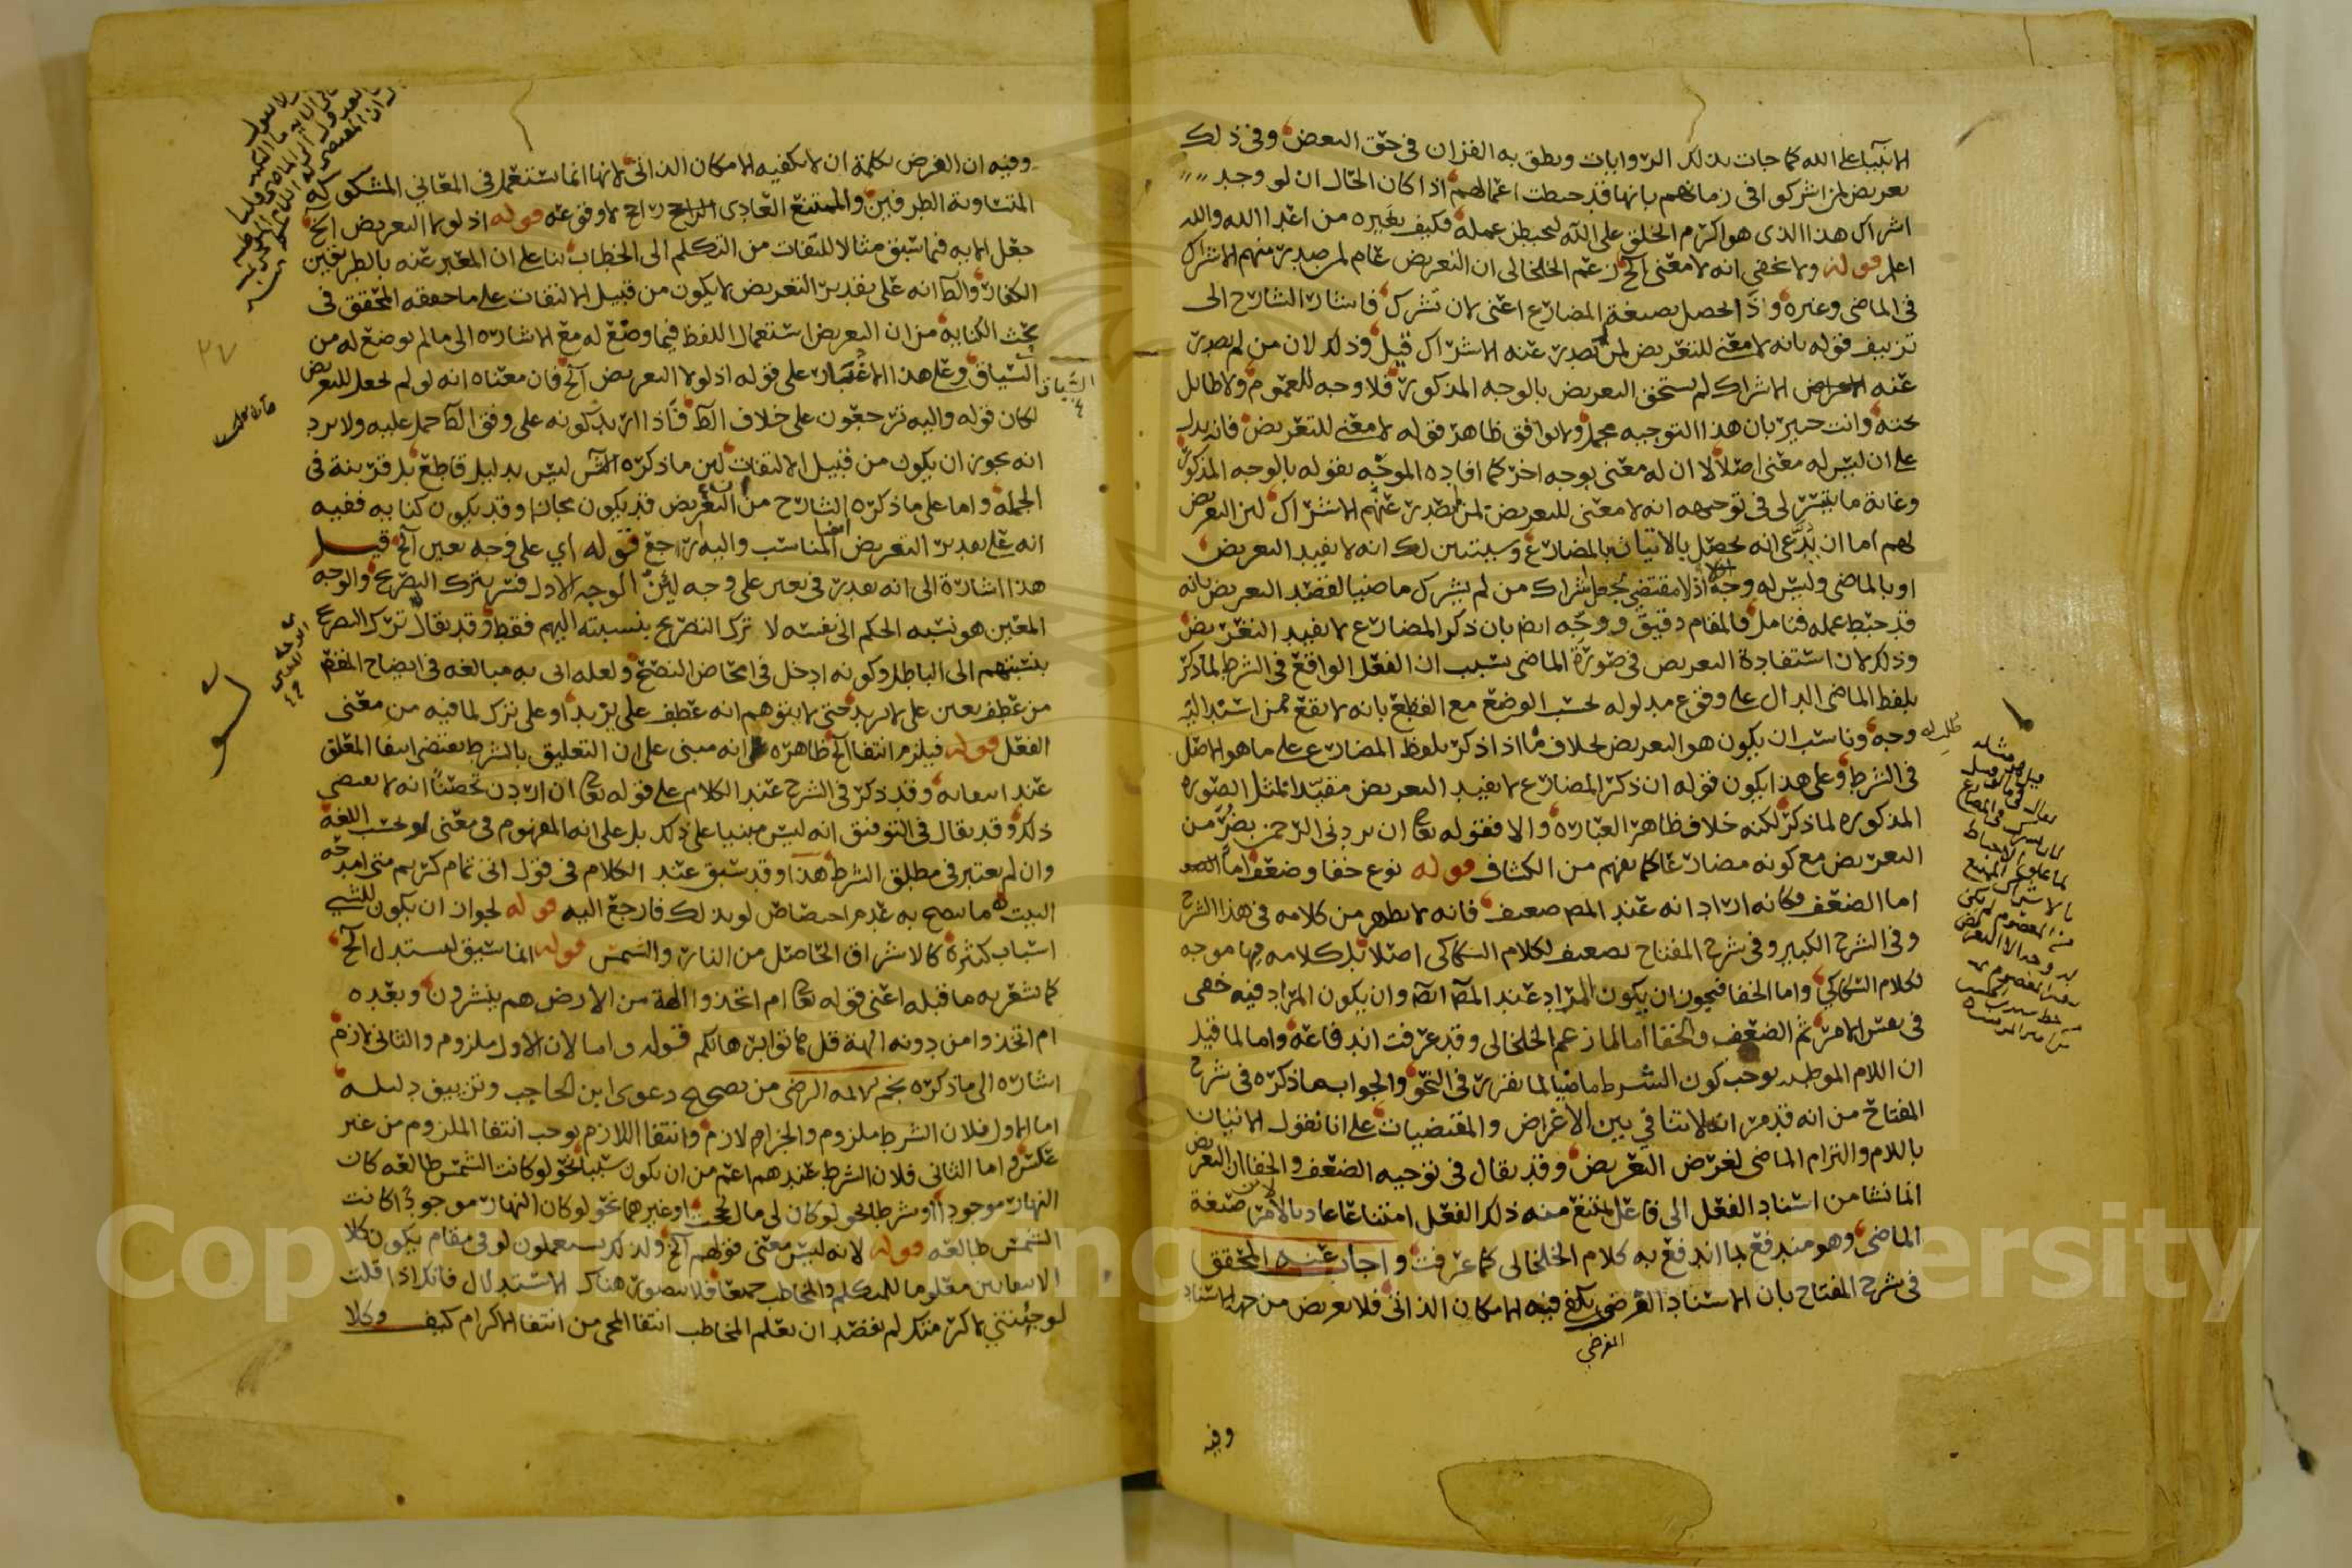 الانبياء على الله كما جات بذلك الروايات ونطق به القران في حق البعض وفي ذلك
تعريض لمن اشركوا في زمانهم بانها قد حبطت اعمالهم اذا كان الحال ان لو وجد
اشراك هذا الذي هو اكرم الخلق على الله ليحبطن عمله فكيف بغيره من اعدا الله والله
اعلم قوله ولا يخفى انه لا معنى الخ زعم الخلخالي ان التعريض عام لمن صدر منهم الاشراك
في الماضي وغيره واذا لحصل بصيغة المضارع اعني لان تشرك فاشار الشارح الى
تزييف قوله بانه لا معنى للتعريض لمن لم يصدر عنه الاشراك قيل وذلك لان من لم يصدر
عنه الاشراك لم يستحق التعريض بالوجه المذكور فلا وجه للعموم ولا طايل
تحته وانت خبير بان هذا التوجيه مجمل ولا يوافق ظاهر قوله لا معنى للتعريض فانه يدل
على ان ليس له معنى اصلا لا ان له معنى بوجه اخر كما افاده الموجه بقوله بالوجه المذكور
وغاية ما يتيسر لي في توجيهه انه لا معنى للتعريض لمن لم يصدر عنهم الاشراك لان التعريض
لهم اما ان يدعى انه يحصل بالاتيان بالمضارع وسيتبين لك انه لا يفيد التعريض
او بالماضي وليس له وجه اذ لا مقتضي لجعل اشراك من لم يشرك ماضيا لقصد التعريض بانه
قد حبط عمله فتامل فالمقام دقيق ووجه ايضا بان ذكر المضارع لا يفيد التعريض
وذلك لان استفادة التعريض في صورة الماضي بسبب ان الفعل الواقع في الشرط لما ذكر
بلفظ الماضي الدال على وقوع مدلوله بحسب الوضع مع القطع بانه لا يقع ممن اسند اليه
وجه وناسب ان يكون هو التعريض بخلاف ما اذا ذكر بلفظ المضارع على ما هو الاصل
في الشرط وعلى هذا يكون قوله ان ذكر المضارع لا يفيد التعريض مقيدا بمثل الصورة
المذكوره لما ذكر لكنه خلاف ظاهر العبارة والا فقوله تعالى ان يردني الرحمن بضر من
التعريض مع كونه مضارعا كما يفهم من الكشاف قوله نوع خفا وضعف
اما الضعف فكانه اراد انه عند المصـ ضعيف فانه لا يظهر من كلامه في هذا الشرح
وفي الشرح الكبير وفي شرح المفتاح تضعيف لكلام السكاكي اصلا بل كلامه فيها موجه
لكلام السكاكي واما الخفا فيجوز ان يكون المراد عند المصـ ايضا وان يكون المراد فيه خفى
في نفس الامر ثم الضعف والخفا اما لما زعم الخلخالي وقد عرفت اندفاعه واما لما قيل
ان اللام الموطئه يوجب كون الشرط ماضيا لما تقرر في النحو والجواب ما ذكره في شرح
المفتاح من انه قد مر انه لا تنافي بين الاغراض والمقتضيات على انا نقول الاتيان
باللام والتزام الماضي لغرض التعريض وقد يقال في توجيه الضعف والخفا ان التعريض
انما نشا من اسناد الفعل الى فاعل يمتنع منه ذلك الفعل امتناعا عاديا لا من صيغة
الماضي وهو مندفع بما اندفع به كلام الخلخالي كما عرفت واجاب عنه المحقق
في شرح المفتاح بان الاسناد الفرضي يكفي فيه الامكان الذاتي فلا تعريض من جهة الاسناد
الفرضي
وفيه
وفيه ان الفرض بكلمة ان لا يكفيه الامكان الذاتي لانها انما تستعمل في المعاني المشكوكة
المتساوية الطرفين والممتنع العادي الراجح لا وقوعه قوله اذ لولا التعريض الخ
جعل الايه فيما سبق مثالا للتفات من التكلم الى الخطاب بنا على ان المعبر عنه بالطريقين
الكفار والظاهر انه على تقدير التعريض لا يكون من قبيل الالتفات على ما حققه المحقق في
بحث الكناية من ان التعريض استعمال اللفظ فيما وضع له مع الاشارة الى ما لم يوضع له من
السياق وعلى هذا الاعتبار على قوله اذ لولا التعريض الخ فان معناه انه لو لم يجعل للتعريض
لكان قوله واليه ترجعون على خلاف الظـ فاذا اريد كونه على وفق الظـ حمل عليه ولا يرد
انه يجوز ان يكون من قبيل الالتفات لان ما ذكره الشـ ليس بدليل قاطع بل قرينة في
الجملة واما على ما ذكره الشارح من ان التعريض قد يكون مجازا وقد يكون كناية ففيه
انه على تقدير التعريض ايضا المناسب واليه ارجع قوله اي على وجه يعين الخ قيل
هذا اشارة الى انه يقدر في يعين على وجه لان الوجه الاول فسر بترك التصريح والوجه
المعين هو نسبه الحكم الى نفسه لا ترك التصريح بنسبته اليهم فقط وقد يقال ترك التصريح
بنسبتهم الى الباطل وكونه ادخل في امحاض النصح ولعله اتى به مبالغه في ايضاح المقصـ
من عطف يعين على لا يريد حتى لا يتوهم انه عطف على يزيد او على ترك لما فيه من معنى
الفعل قوله فيلزم انتفا الخ ظاهره انه مبنى على ان التعليق بالشرط يقتضي انتفا المعلق
عند انتفائه وقد ذكر في الشرح عند الكلام على قوله تعالى ان اردن تحصنا انه لا يقتضي
ذلك وقد يقال في التوفيق انه ليس مبنيا على ذلك بل على انه المفهوم في معنى لو بحسب اللغة
وان لم يعتبر في مطلق الشرط هذا وقد سبق عند الكلام في قول ابي تمام كريم متى امدحه
البيت ما يصح به عدم اختصاص لو بذلك فارجع اليه قوله لجواز ان يكون للشيي
اسباب كثيرة كالاشراق الحاصل من النار والشمس قوله انما سيق ليستدل الخ
كما يشعر به ما قبله اعني قوله تعالى ام اتخذوا الهة من الارض هم ينشرون وبعده
ام اتخذوا من دونه الهة قل هاتوا برهانكم قوله واما لان الاول ملزوم والثاني لازم
اشارة الى ما ذكره نجم الايمه الرضي من تصحيح دعوى ابن الحاجب وتزييف دليله
اما الاول فلان الشرط ملزوم والجزا لازم وانتفا اللازم يوجب انتفا الملزوم من غير
عكس واما الثاني فلان الشرط عندهم اعم من ان يكون سببا نحو لو كانت الشمس طالعه كان
النهار موجودا او شرطا نحو لو كان لي مال لحججت او غيرهما نحو لو كان النهار موجودا كانت
الشمس طالعه قوله لانه ليس معنى قولهم الخ ولذلك يستعملون لو في مقام يكون كلا
الانتفاءين معلوما للمتكلم والمخاطب جميعا فلا يتصور هناك الاستدلال فانك اذا قلت
لو جئتني لاكرمتك لم تقصد ان تعلم المخاطب انتفا المجى من انتفا الاكرام كيف وكلا
٢٧
Copyright © King Saud University